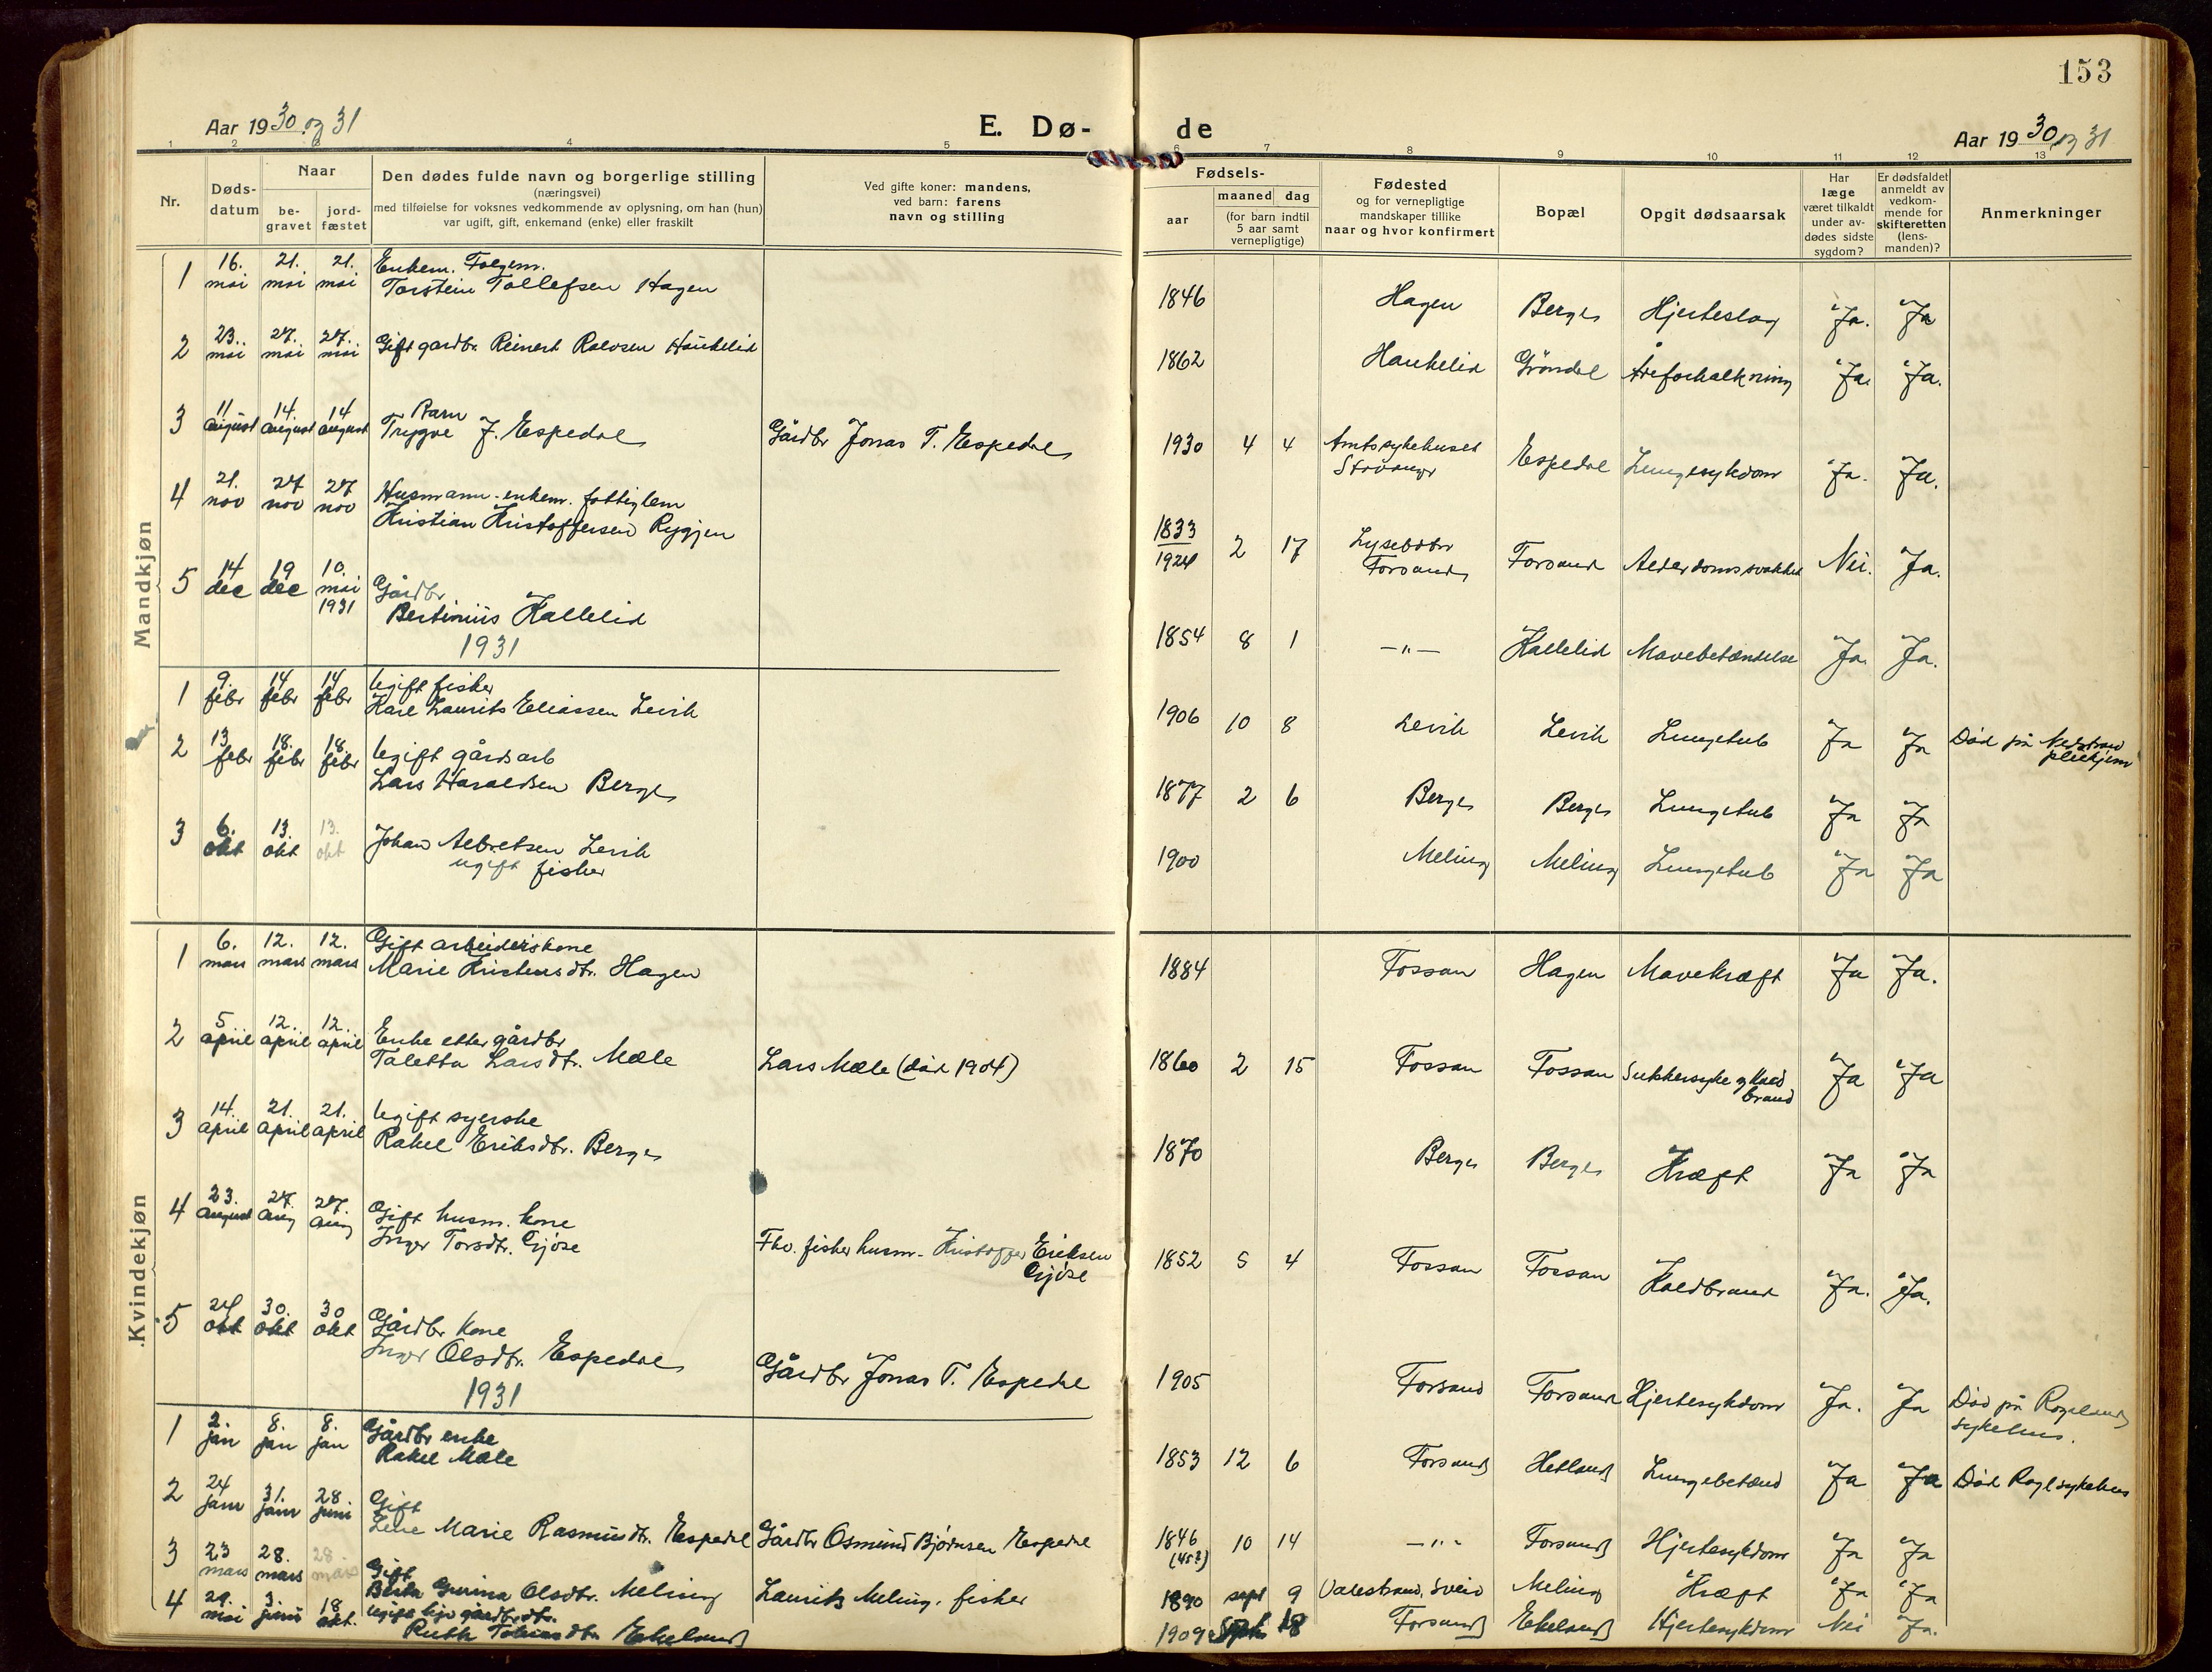 153
Aar 1930 og 31
E. Dø-
de
Aar 1930 og 31
1 2 3 4 5 6 7 8 9 10 11 12 13
Nr.
Døds-
datum
Naar
be-
gravet
jord-
fæstet
Den dødes fulde navn og borgerlige stilling
(næringsvei)
med tilføielse for voksnes vedkommende av oplysning, om han (hun)
var ugift, gift, enkemand (enke) eller fraskilt
Ved gifte koner: mandens,
ved barn: farens
navn og stilling
Fødsels-
aar
maaned dag
(for barn indtil
5 aar samt
vernepligtige)
Fødested
og for vernepligtige
mandskaper tillike
naar og hvor konfirmert
Bopæl
Opgit dødsaarsak
Har
læge
været tilkaldt
under av-
dødes sidste
sygdom?
Er dødsfaldet
anmeldt av
vedkom-
mende for
skifteretten
(lens-
manden)?
Anmerkninger
Mandkjøn
1 16. mai 21. mai 21. mai Enkem. Folgem.
Torstein Tollefsen Hagen 1846 Hagen Berge Hjerteslag Ja. Ja
2 23. mai 27. mai 27. mai Gift gardbr. Reinert Ralvsen Haukelid 1862 Haukelid Gröndal Åreforkalkning Ja. Ja.
3 11 august 14. august 14 august Barn
Trygve J. Espedal Gårdbr Jonas T. Espedal 1930 4 4 Amtssykehuset
Stavanger Espedal Lungesykdom Ja. Ja.
4 21. nov 27 nov 27 nov Husmann - enkem. fattiglem
Kristian Kristoffersen Rygjen 1833
1924 2 17 Lysebotn
Forsand Forsand Alderdomssvakhet Nei. Ja.
5 14 dec 19 dec 10. mai 1931 Gårdbr
Bertinius Kallelid 1854 8 1 —"— Kallelid Mavebetændelse Ja. Ja.
1931
1 9. febr 14 febr 14 febr Ugift fisker
Karl Laurits Eliassen Levik 1906 10 8 Levik Levik Lungetub Ja Ja Död på Nedstrand
pleiehjem
2 13 febr 18. febr 18. febr Ugift gårdsarb
Lars Haraldsen Berge 1877 2 6 Berge Berge Lungetub Ja Ja
3 6. okt 13. okt 13. okt Johan Albretsen Levik
ugift fisker 1900 Meling Meling Lungetub Ja Ja
Kvindekjøn
1 6. mars 12. mars 12. mars Gift arbeiderskone
Marie Kristensdtr. Hagen 1884 Fossan Hagen Mavekræft Ja Ja.
2 5 april 12. april 12. april Enke etter gårdbr
Taletta Larsdtr. Mæle Lars Mæle (död 1904) 1860 2 15 Fossan Fossan Sukkersyke og kold
brand Ja Ja
3 14. april 21. april 21. april Ugift syerske
Rakel Eriksdtr. Berge 1870 Berge Berge Kræft Ja Ja
4 23. august 27. aug 27. aug Gift husm. kone
Inger Torsdtr. Gjöse Fhv. fisker husm. Kristoffer Eriksen
Gjöse 1852 5 4 Fossan Fossan Koldbrand Ja. Ja.
5 24 okt 30. okt 30 okt Gårdbr kone
Inger Olsdtr. Espedal Gårdbr Jonas T. Espedal 1905 Forsand Forsand Hjertesykdom Ja. Ja Död på Rogaland
sykehus.
1931
1 2. jan 8. jan 8. jan Gårdbr enke
Rakel Mæle 1853 12 6 Forsand Hetland Lungebetænd Ja Ja Död Rogl sykehus
2 24 janr 31. janr 28 juni Gift
Lene Marie Rasmusdtr. Espedal Gårdbr Osmund Bjørnsen Espedal 1846
(45?) 10 14 —"— Forsand Hjertesykdom Ja Ja
3 23 mars 28. mars 28 mars Gift
Berta Gurina Olsdtr. Meling Laurits Meling, fisker 1890 sept 9 Valestrand, Sveio Meling Kræft Ja Ja
4 29. mai 3. juni 18 okt. Ugift gårdbr. dtr.
Ruth Tobiasdtr Ekeland 1909 Sept 18 Forsand Ekeland Hjertesykdom Nei Ja.